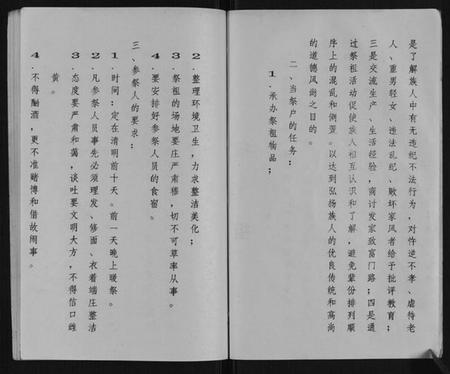 是了解族人中有无违纪不法行为，对忤逆不孝、虐待老
人、重男轻女、违法乱纪、败坏家风者给于批评教育；
三是交流生产、生活经验，商讨发家致富门路；四是通
过祭祖活动促使族人相互认识和了解，避免辈份排列顺
序上的混乱和倒置。以达到弘扬族人的优良传统和高尚
的道德风尚之目的。
二、当祭户的任务：
1.承办祭祖物品；
2.整理环境卫生，力求整洁美化；
3.祭祖的场地要庄严肃穆，切不可草率从事。
4.要安排好参祭人员的食宿。
三、参祭人的要求：
1.时间：定在清明前十天。前一天晚上暖祭。
2.凡参祭人员事先必须理发、修面、衣着端庄整洁
3.态度要严肃和蔼，谈吐要文明大方，不得信口雌
黄。
4.不得酗酒，更不准赌博和借故闹事。